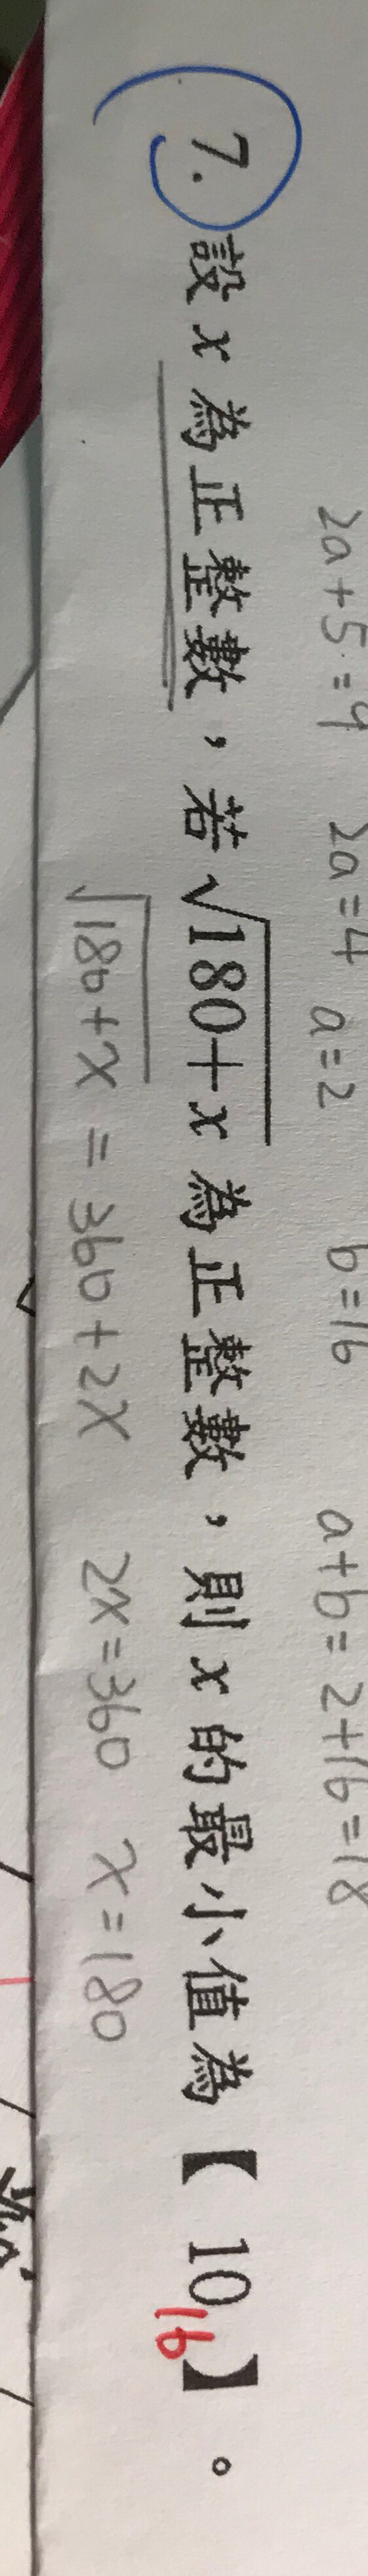 2a+5=9 2a=4 a=2 b=16 a+b=2+16=18
7. 設 x 為正整數，若√180+x 為正整數，則 x 的最小值為【 10 】。
16
√180+x = 360+2x 2x=360 x=180